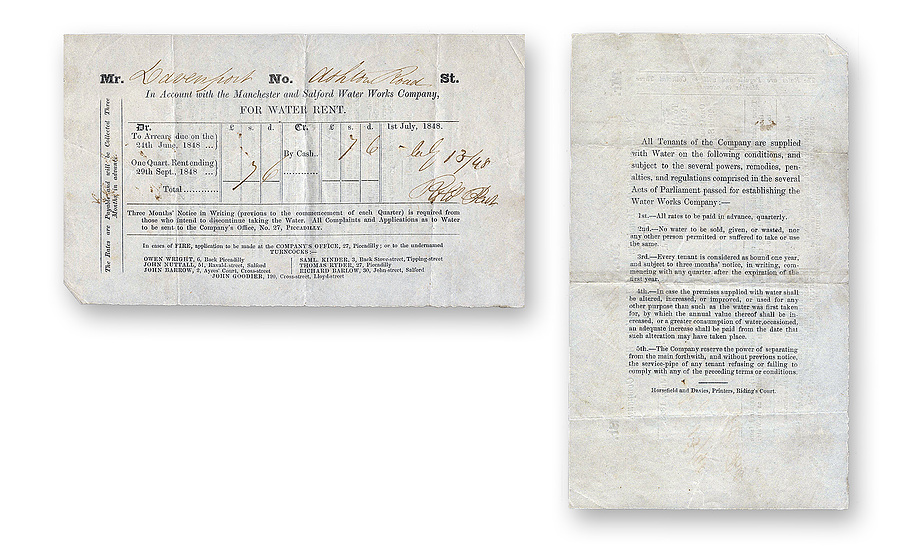 Mr. Davenport No. Ashton Road St.
In Account with the Manchester and Salford Water Works Company,
FOR WATER RENT.
Dr. £ s. d. Cr. £ s. d. 1st July, 1848.
To Arrears due on the
24th June, 1848 ...
By Cash.. 7 6 13/48
One Quart. Rent ending
29th Sept., 1848 ... 7 6
Total............
Three Months' Notice in Writing (previous to the commencement of each Quarter) is required from
those who intend to discontinue taking the Water. All Complaints and Applications as to Water
to be sent to the Company's Office, No. 27, PICCADILLY.
In cases of FIRE, application to be made at the COMPANY'S OFFICE, 27, Piccadilly; or to the undernamed
TURNCOCKS:—
OWEN WRIGHT, 6, Back Piccadilly
JOHN NUTTALL, 51, Ravald-street, Salford
JOHN BARROW, 2, Ayres' Court, Cross-street
SAML. KINDER, 3, Back Stove-street, Tipping-street
THOMAS RYDER, 27, Piccadilly
RICHARD BARLOW, 30, John-street, Salford
JOHN GOODIER, 190, Cross-street, Lloyd-street
The Rates are Payable and will be Collected Three
Months in advance.
All Tenants of the Company are supplied
with Water on the following conditions, and
subject to the several powers, remedies, pen-
alties, and regulations comprised in the several
Acts of Parliament passed for establishing the
Water Works Company:—
1st.—All rates to be paid in advance, quarterly.
2nd.—No water to be sold, given, or wasted, nor
any other person permitted or suffered to take or use
the same.
3rd.—Every tenant is considered as bound one year,
and subject to three months' notice, in writing, com-
mencing with any quarter after the expiration of the
first year.
4th.—In case the premises supplied with water shall
be altered, increased, or improved, or used for any
other purpose than such as the water was first taken
for, by which the annual value thereof shall be in-
creased, or a greater consumption of water occasioned,
an adequate increase shall be paid from the date that
such alteration may have taken place.
5th.—The Company reserve the power of separating
from the main forthwith, and without previous notice,
the service-pipe of any tenant refusing or failing to
comply with any of the preceding terms or conditions.
Horsefield and Davies, Printers, Riding's Court.